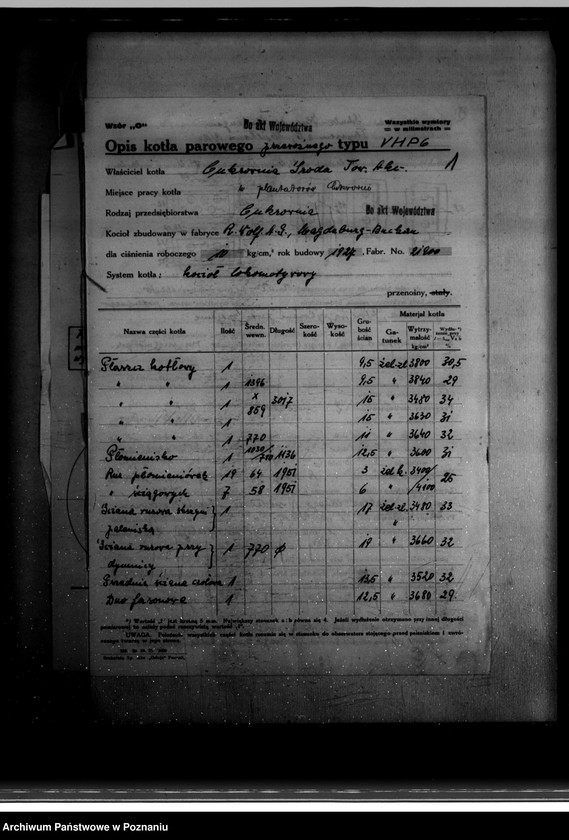 Wzór „C"
Do akt Województwa
Wszystkie wymiary
= w milimetrach =
Opis kotła parowego przewoźnego typu VHP6
1
Właściciel kotła Cukrownia Środa Tow. Akc.
Miejsce pracy kotła w plantatorów Cukrowni
Rodzaj przedsiębiorstwa Cukrownia
Do akt Województwa
Kocioł zbudowany w fabryce R. Wolf A.G., Magdeburg-Buckau
dla ciśnienia roboczego 10 kg/cm,² rok budowy 1927, Fabr. No. 21900
System kotła: kocioł lokomotywowy
przenośny, stały.
Nazwa części kotła Ilość Średn. wewn. Długość Szerokość Wysokość Grubość ścian Materjał kotła
Gatunek Wytrzymałość kg/cm²
Płaszcz kotłowy 1 9,5 żel-zl. 3800 30,5
" " 1 1396 9,5 " 3840 29
" " 1 x 859 3017 15 " 3480 34
1 15 " 3630 31
" " 1 770 11 " 3640 32
Płomienisko 1 1030/720 1136 12,5 " 3600 31
Rur płomieniówek 19 64 1951 3 żel k. 3400/4100 25
" ściągowych 7 58 1951 6 "
Ściana rurowa skrzyni paleniska } 1 17 żel-zl. 3480 33
Ściana rurowa przy dymnicy } 1 770 ϕ 19 " 3660 32
Przednia ściana czołowa 1 13,5 " 3520 32
Dno fasonowe 1 12,5 " 3680 29
*) Wartość „l" jest kratną 5 mm. Największy stosunek a : b równa się 4. Jeżeli wydłużenie otrzymano przy innej długości
pomiarowej to należy podać rzeczywistą wartość „l".
UWAGA.
Archiwum Państwowe w Poznaniu